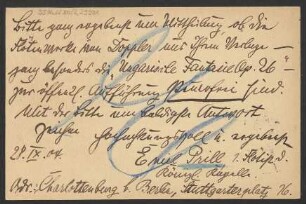 Bitte ganz ergebenst um Mittheilung ob die
Flötenwerke von Doppler aus Ihrem Verlage —
ganz besonders die „Ungarische Fantasie Op. 26" —
zur öffentl. Aufführung frei sind.
Mit der Bitte um baldigste Antwort
zeichne hochachtungsvoll u. ergebenst
29. IX. 04. Emil Prill 1. Flötist d.
Königl. Kapelle.
Adr: Charlottenburg b. Berlin, Stuttgarterplatz